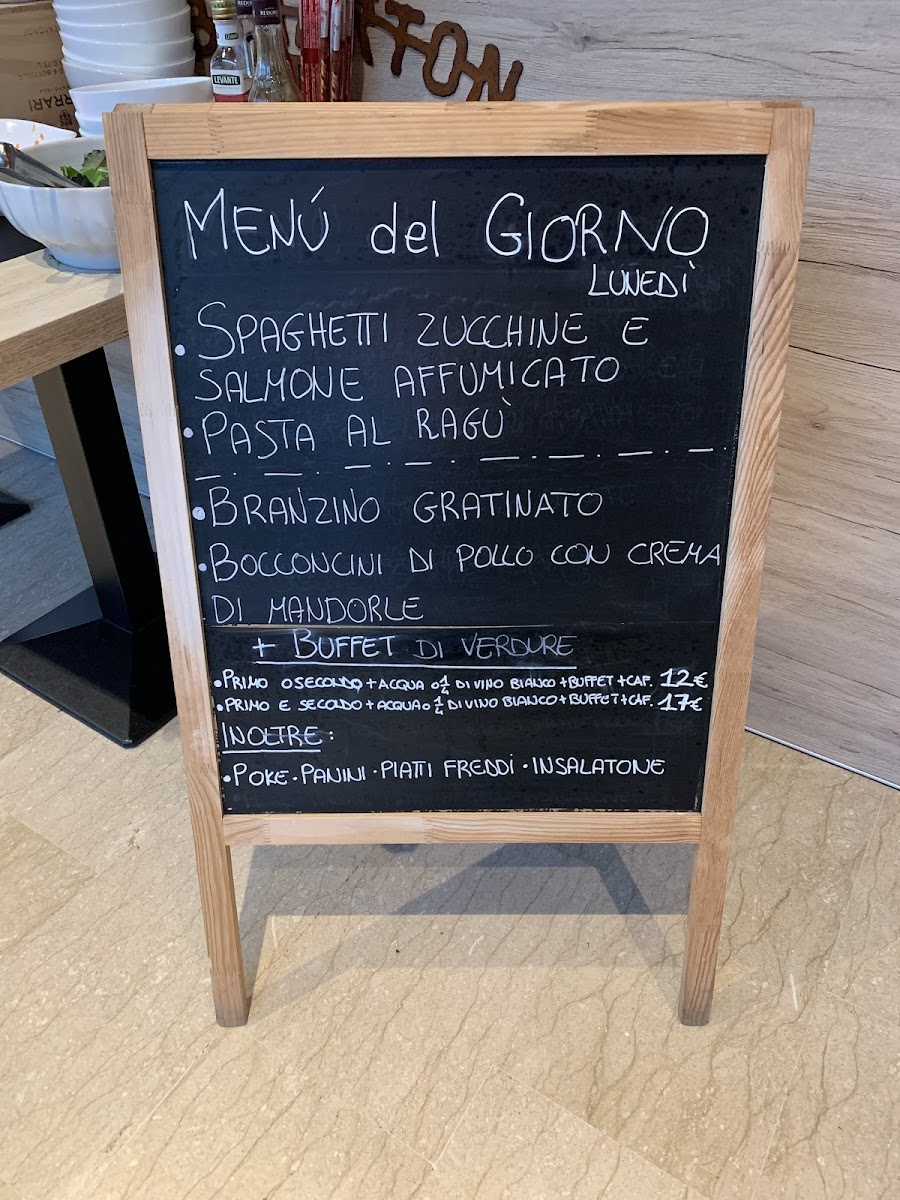 REDORO
LEVANTE
LEVANTE
RRARI
TON
MENÚ del GIORNO
LUNEDÌ
• SPAGHETTI ZUCCHINE E
SALMONE AFFUMICATO
• PASTA AL RAGÙ
• BRANZINO GRATINATO
• BOCCONCINI DI POLLO CON CREMA
DI MANDORLE
+ BUFFET DI VERDURE
• PRIMO O SECONDO + ACQUA O 1/4 DI VINO BIANCO + BUFFET + CAF. 12€
• PRIMO E SECONDO + ACQUA O 1/4 DI VINO BIANCO + BUFFET + CAF. 17€
INOLTRE:
• POKE • PANINI • PIATTI FREDDI • INSALATONE